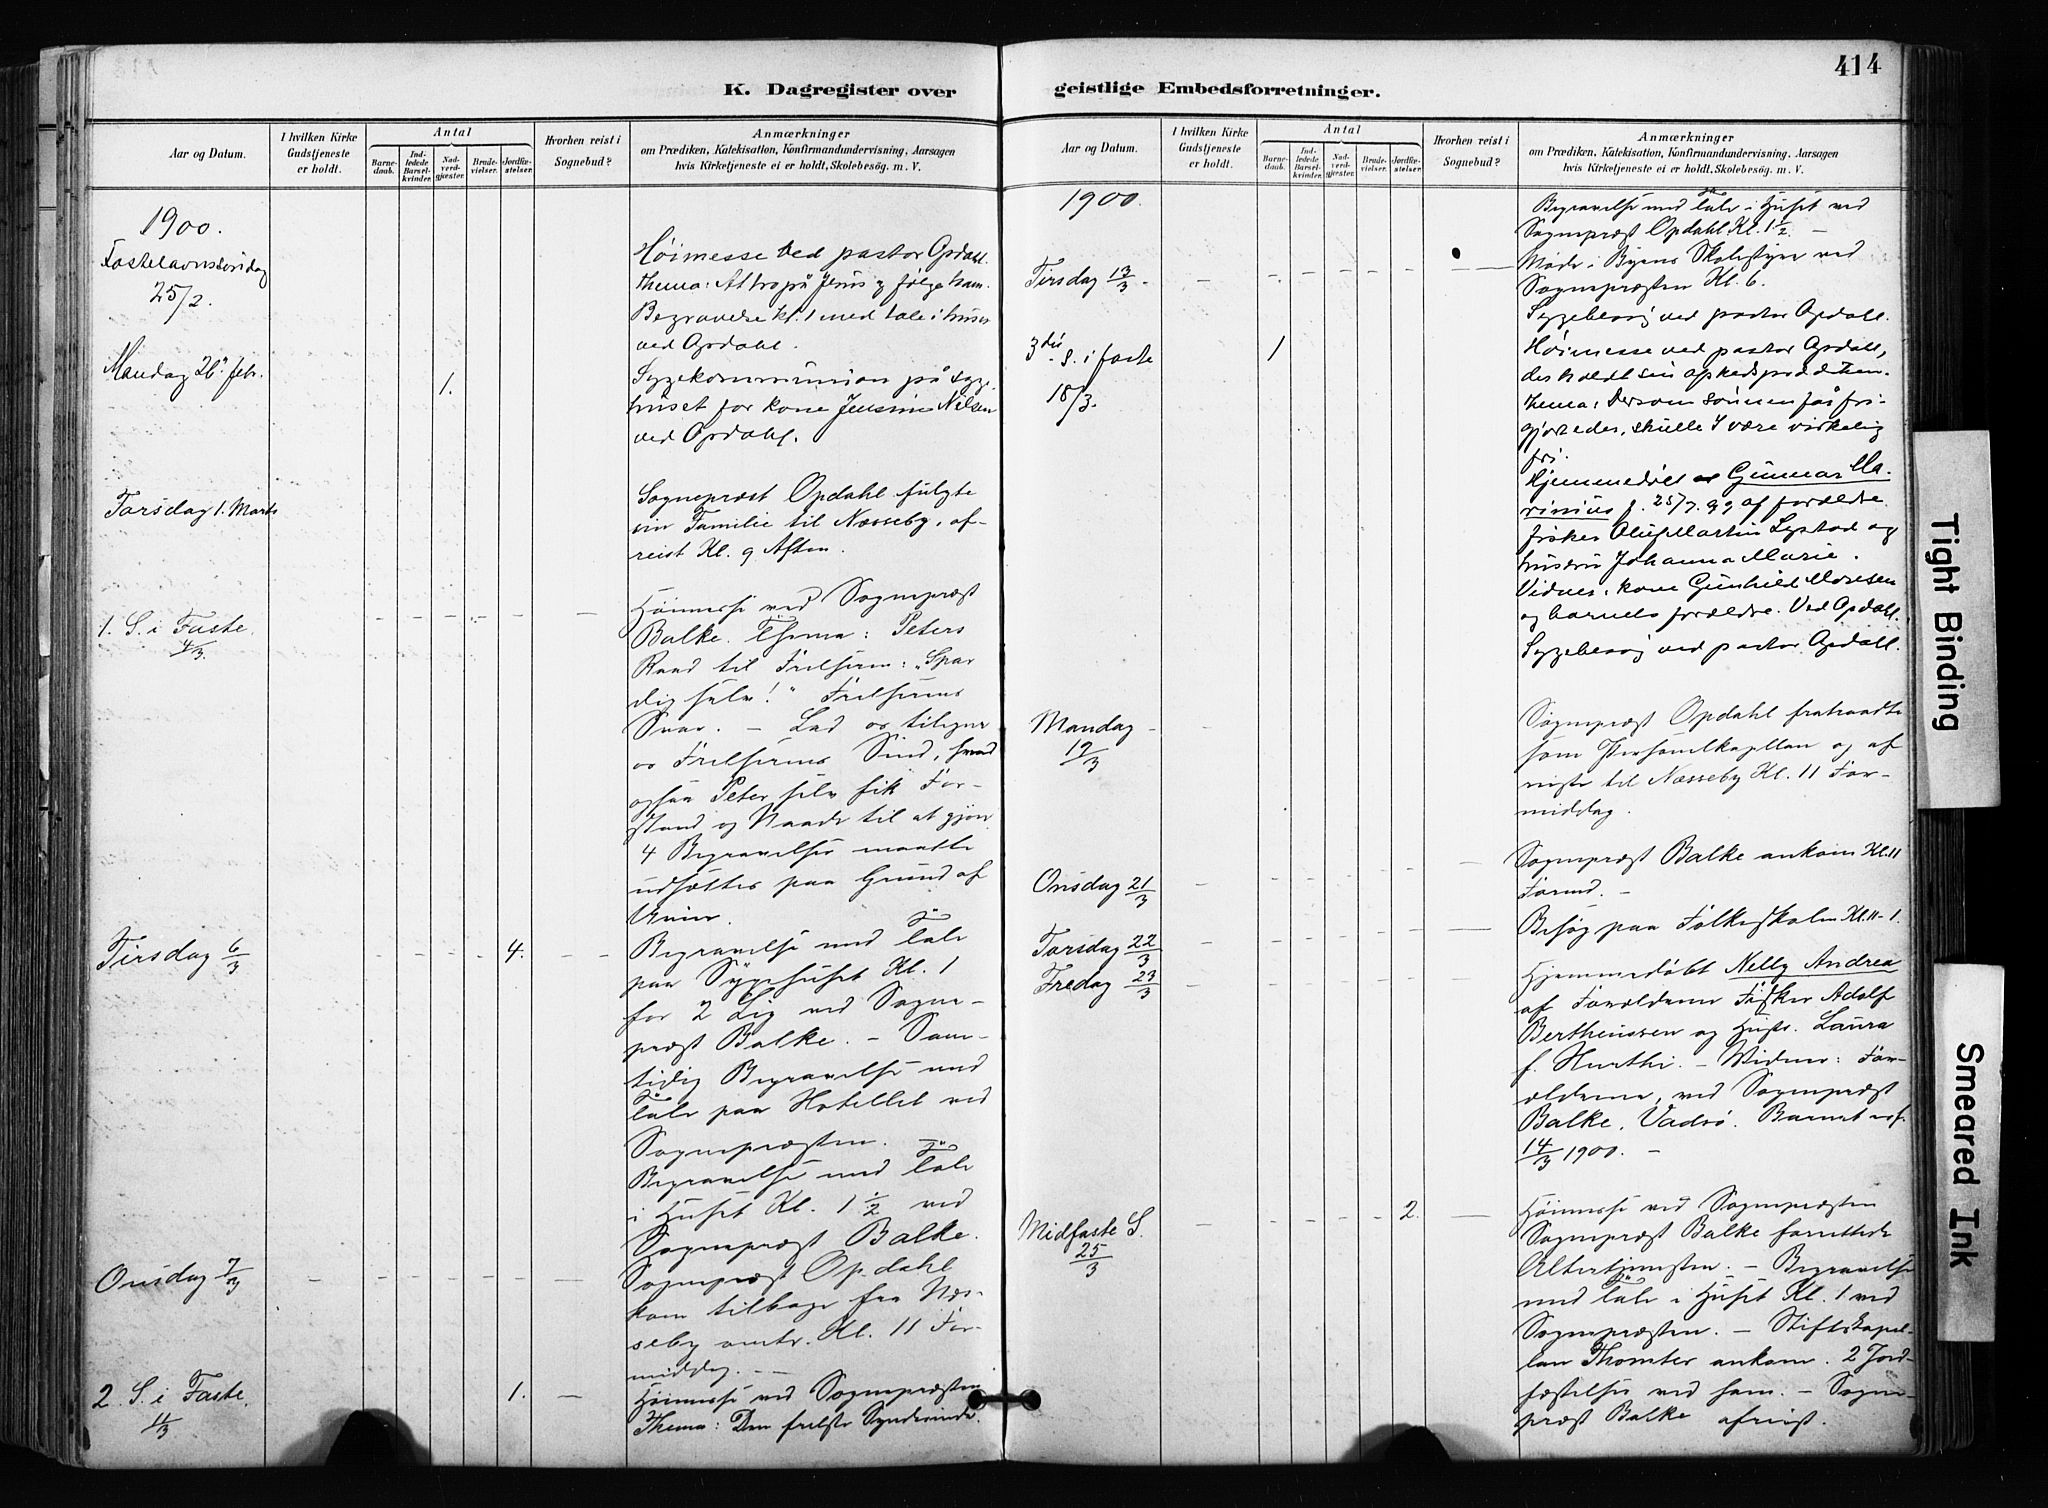 414
K. Dagregister over
Aar og Datum.
I hvilken Kirke
Gudstjeneste
er holdt.
Antal
Barne-
daab.
Ind-
ledede
Barsel-
kvinder.
Nad-
verd-
gjæster.
Brude-
vielser.
Jordfæ-
stelser.
Hvorhen reist i
Sognebud?
Anmærkninger
om Prædiken, Katekisation, Konfirmandundervisning, Aarsagen
hvis Kirketjeneste ei er holdt, Skolebesög. m. V.
1900.
Fastelavnssøndag
25/2.
Høimesse ved pastor Opdahl.
thema: At tro på Jesus og følge ham.
Begravelse kl. 1 med tale i huset
ved Opdahl.
Mandag 26 febr.
1.
Sygekommunion på syge-
huset for kone Jensine Nilsen
ved Opdahl.
Torsdag 1. Marts
Sognepræst Opdahl fulgte
sin Familie til Næsseby, af-
reist Kl. 9 Aften.
1. S. i Faste.
4/3.
Høimesse ved Sognepræst
Balke. Thema: Peters
Raad til Frelseren: "Spar
dig selv!" Frelserens
Svar. – Lad os tilegne
os Frelserens Sind, hvad
ogsaa Peter selv fik For-
stand og Naade til at gjøre.
4 Begravelser maatte
udsættes paa Grund af
Uveir.
Tirsdag 6/3
4.
Begravelse med Tale
paa Sygehuset Kl. 1
for 2 Lig ved Sogne-
præst Balke. – Sam-
tidig Begravelse med
Tale paa Hotellet ved
Sognepræsten. –
Begravelse med Tale
i Huset Kl. 1 1/2 ved
Sognepræst Balke.
Onsdag 7/3
Sognepræst Opdahl
kom tilbage fra Næs-
seby omtr. Kl. 11 For-
middag. –
2. S. i Faste.
11/3
1.
Høimesse ved Sognepræsten
Thema: Den frelste Synderinde.
geistlige Embedsforretninger.
Aar og Datum.
I hvilken Kirke
Gudstjeneste
er holdt.
Antal
Barne-
daab.
Ind-
ledede
Barsel-
kvinder.
Nad-
verd-
gjæster.
Brude-
vielser.
Jordfæ-
stelser.
Hvorhen reist i
Sognebud?
Anmærkninger
om Prædiken, Katekisation, Konfirmandundervisning, Aarsagen
hvis Kirketjeneste ei er holdt, Skolebesög m. V.
1900.
Begravelse med Tale i Huset ved
Sognepræst Opdahl Kl. 1 1/2. –
Tirsdag 13/3.
Møde i Byens Skolestyre ved
Sognepræsten Kl. 6.
Sygebesøg ved pastor Opdahl.
3die S. i faste
18/3.
1
Høimesse ved pastor Opdahl,
der holdt sin afskedsprædiken.
thema: Dersom sønnen får fri-
gjort eder, skulle I være virkelig
fri.
Hjemmedøbt Gunnar Ma-
rinius f. 25/7.99 af forældre
fisker Oluf Martin Lystad og
hustru Johanna Marie.
Vidner, kone Gunhild Moresen
og barnets forældre. Ved Opdahl.
Sygebesøg ved pastor Opdahl.
Mandag
19/3
Sognepræst Opdahl fratraadte
som Personelkapellan og af
reiste til Næsseby Kl. 11 For-
middag.
Onsdag 21/3
Sognepræst Balke ankom Kl. 11
Formd. –
Torsdag 22/3
Besøg paa Folkeskolen Kl. 11-1.
Fredag 23/3
Hjemmedøbt Nelly Andrea
af Forældrene Fisker Adolf
Bertheussen og Hustr. Laura
f. Hurthi. – Vidner: For-
ældrene, ved Sognepræst
Balke, Vadsø. Barnet er f.
14/3 1900. –
Midfaste S.
25/3
2.
Høimesse ved Sognepræsten
Sognepræst Balke forrettede
Altertjenesten. – Begravelse
med Tale i Huset Kl. 1 ved
Sognepræsten. – Stiftskapel-
lan Thomter ankom. 2 Jord-
fæstelser ved ham. – Sogne-
præst Balke afreist.
Tight Binding
Smeared Ink